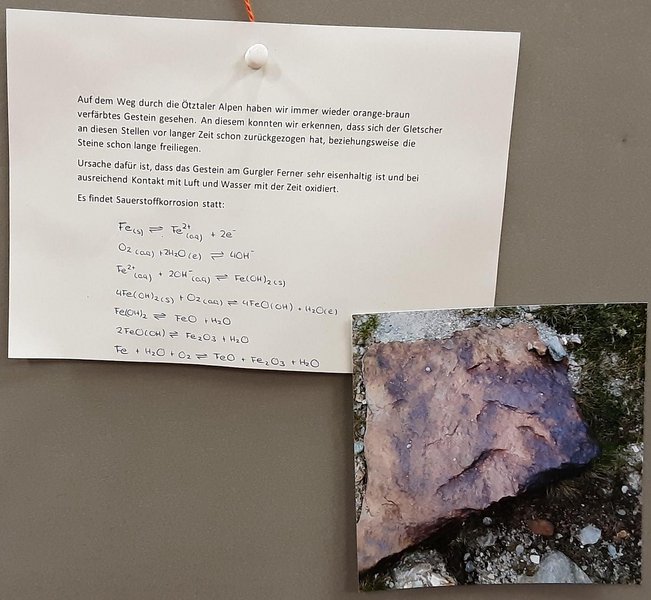 Auf dem Weg durch die Ötztaler Alpen haben wir immer wieder orange-braun
verfärbtes Gestein gesehen. An diesem konnten wir erkennen, dass sich der Gletscher
an diesen Stellen vor langer Zeit schon zurückgezogen hat, beziehungsweise die
Steine schon lange freiliegen.
Ursache dafür ist, dass das Gestein am Gurgler Ferner sehr eisenhaltig ist und bei
ausreichend Kontakt mit Luft und Wasser mit der Zeit oxidiert.
Es findet Sauerstoffkorrosion statt:
Fe(s) ⇌ Fe²⁺(aq) + 2e⁻
O₂(aq) + 2H₂O(l) ⇌ 4OH⁻
Fe²⁺(aq) + 2OH⁻(aq) ⇌ Fe(OH)₂(s)
4Fe(OH)₂(s) + O₂(aq) ⇌ 4FeO(OH) + H₂O(l)
Fe(OH)₂ ⇌ FeO + H₂O
2FeO(OH) ⇌ Fe₂O₃ + H₂O
Fe + H₂O + O₂ ⇌ FeO + Fe₂O₃ + H₂O